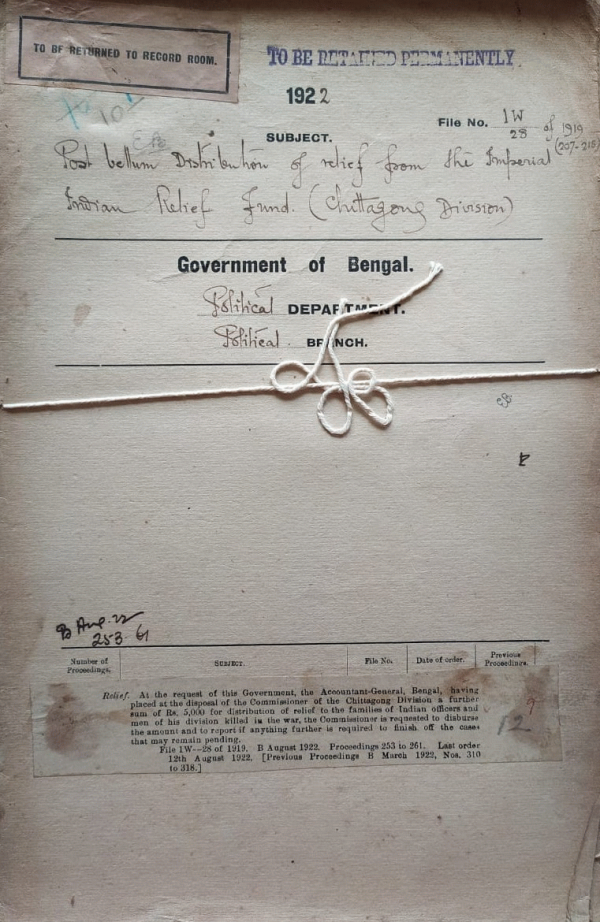 TO BE RETURNED TO RECORD ROOM.
TO BE RETAINED PERMANENTLY
1922
File No. 1W/28 of 1919
(207-215)
SUBJECT.
Post bellum Distribution of relief from the Imperial
Indian Relief Fund. (Chittagong Division)
Government of Bengal.
Political DEPARTMENT.
Political BRANCH.
B Aug. 22
253-61
Number of Proceedings. SUBJECT. File No. Date of order. Previous Proceedings.
Relief. At the request of this Government, the Accountant-General, Bengal, having
placed at the disposal of the Commissioner of the Chittagong Division a further
sum of Rs. 5,000 for distribution of relief to the families of Indian officers and
men of his division killed in the war, the Commissioner is requested to disburse
the amount and to report if anything further is required to finish off the cases
that may remain pending.
File 1W--28 of 1919. B August 1922. Proceedings 253 to 261. Last order
12th August 1922. [Previous Proceedings B March 1922, Nos. 310
to 318.]
9
12